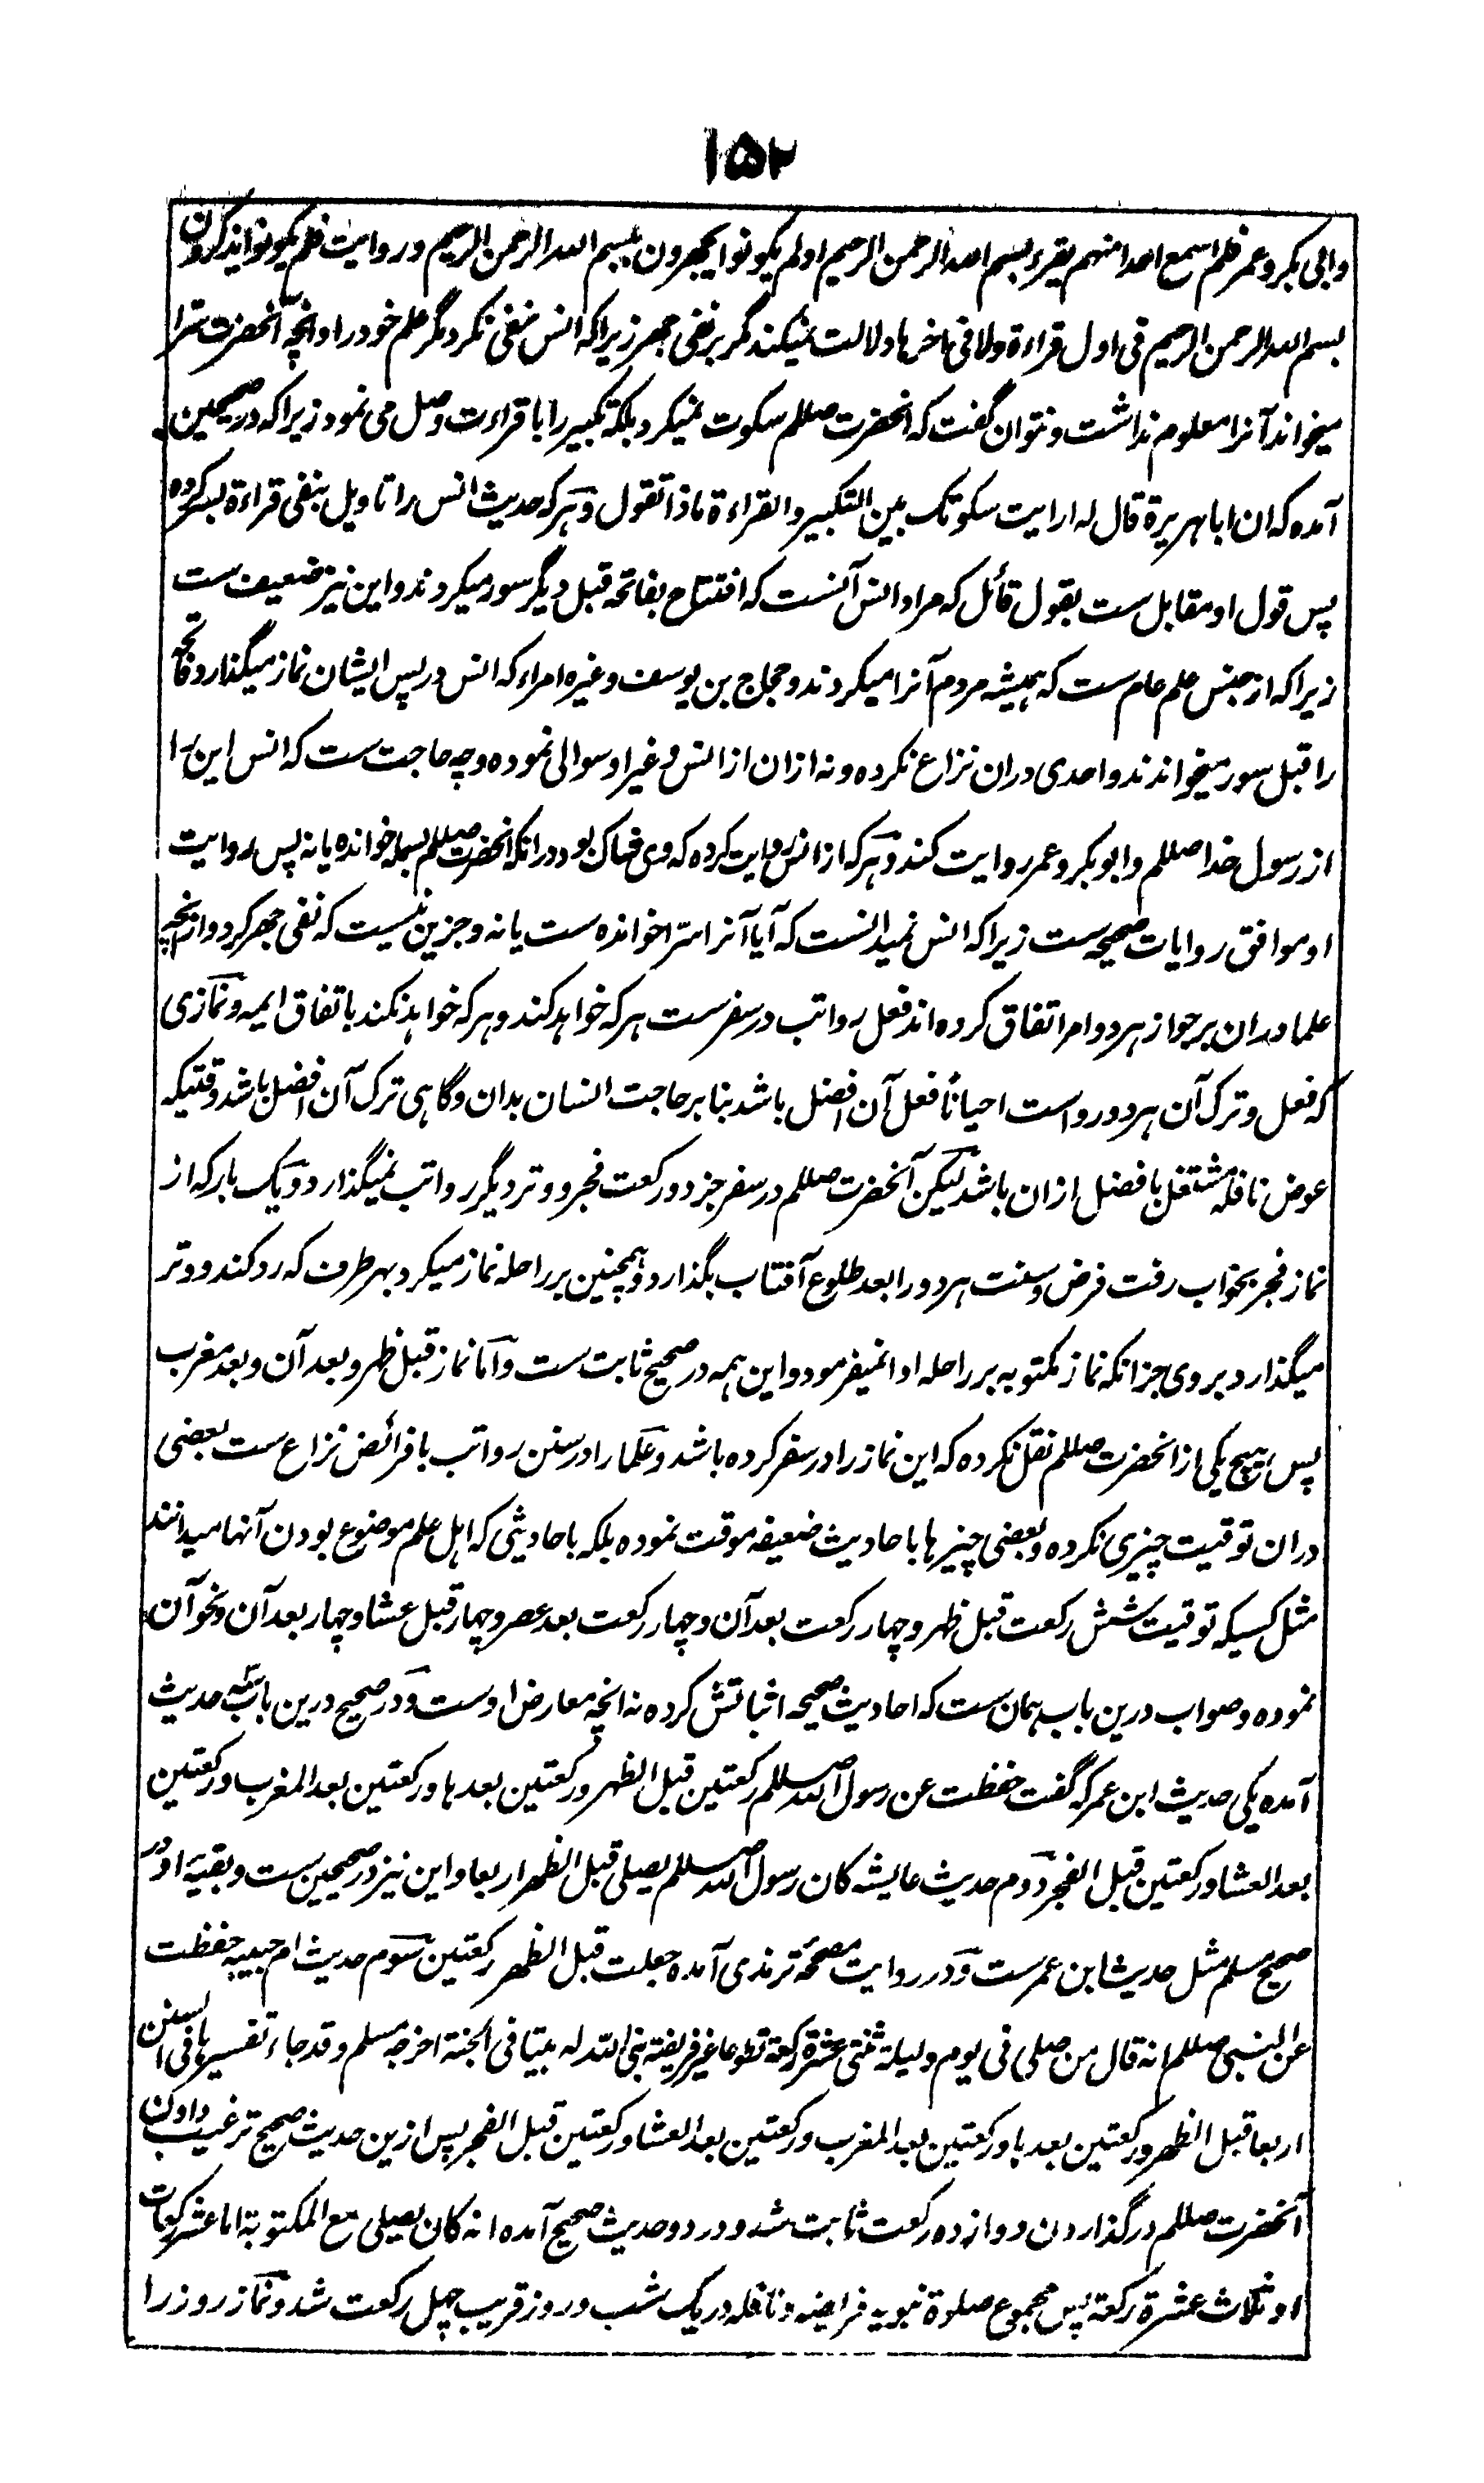 ۱۵۲
وابی بکر و عمر فلم اسمع احدا منهم یقرء بسم الله الرحمن الرحیم او لم یکونوا یجهرون ببسم الله الرحمن الرحیم و روایت فلم یکونوا یذکرون
بسم الله الرحمن الرحیم فی اول قراءة ولا فی اخرها دلالت نمیکند مگر بر نفی جهر زیرا که انس نفی نکرد مگر علم خود را و انچه آنحضرت سرا
میخواند آنرا معلوم نداشت و نتوان گفت که انحضرت صللم سکوت نمیکرد بلکه تکبیر را با قراءت وصل می نمود زیرا که در صحیحین
آمده که ان ابا هریرة قال له ارایت سکوتک بین التکبیر والقراءة ماذا تقول و هر که حدیث انس را تاویل بنفی قراءة بسمله کرده
پس قول او مقابل ست بقول قائل که مراد انس آنست که افتتاح بفاتحه قبل دیگر سور میکردند و این نیز ضعیف ست
زیرا که از جنس علم عام ست که همیشه مردم آنرا میکردند و حجاج بن یوسف و غیره امراء که انس در پس ایشان نماز میگذارد فاتحه
را قبل سور میخواندند و احدی دران نزاع نکرده و نه ازان از انس و غیر او سوالی نموده و چه حاجت ست که انس این را
از رسول خدا صللم و ابوبکر و عمر روایت کند و هر که از انس روایت کرده که وی شاک بود در انکه انحضرت صللم بسمله خوانده یا نه پس روایت
او موافق روایات صحیحه ست زیرا که انس نمیدانست که آیا آنرا سرا خوانده ست یا نه و جز این نیست که نفی جهر کرد و از انچه
علما دران بر جواز هر دو امر اتفاق کرده اند فعل رواتب در سفر ست هر که خواهد کند و هر که خواهد نکند باتفاق ایمه و نمازی
که فعل و ترک آن هر دو رواست احیانا فعل آن افضل باشد بنا بر حاجت انسان بدان و گاهی ترک آن افضل باشد وقتیکه
عوض نافله مشتغل بافضل ازان باشد لیکن آنحضرت صللم در سفر جز دو رکعت فجر و وتر دیگر رواتب نمیگذارد و یک بار که از
نماز فجر بخواب رفت فرض و سنت هر دو را بعد طلوع آفتاب بگذارد و همچنین بر راحله نماز میکرد بهر طرف که رو کند و وتر
میگذارد بر وی جز انکه نماز مکتوبه بر راحله ادا نمیفرمود و این همه در صحیح ثابت ست و اما نماز قبل ظهر و بعد آن و بعد مغرب
پس هیچ یکی از انحضرت صللم نقل نکرده که این نماز را در سفر کرده باشد و علما را در سنن رواتب با فرائض نزاع ست بعضی
دران توقیت چیزی نکرده و بعضی چیزها باحادیث ضعیفه موقت نموده بلکه باحادیثی که اهل علم موضوع بودن آنها میدانند
مثل کسیکه توقیت شش رکعت قبل ظهر و چهار رکعت بعد آن و چهار رکعت بعد عصر و چهار قبل عشا و چهار بعد آن و نحو آن
نموده و صواب درین باب همان ست که احادیث صحیحه اثباتش کرده نه انچه معارض اوست و در صحیح درین باب سه حدیث
آمده یکی حدیث ابن عمر که گفت حفظت عن رسول الله صللم رکعتین قبل الظهر و رکعتین بعدها و رکعتین بعد المغرب و رکعتین
بعد العشا و رکعتین قبل الفجر دوم حدیث عایشه کان رسول الله صللم یصلی قبل الظهر اربعا و این نیز در صحیحین ست و بقیه او در
صحیح مسلم مثل حدیث ابن عمر ست و در روایت مصححه ترمذی آمده جعلت قبل الظهر رکعتین سوم حدیث ام حبیبه حفظت
عن النبی صللم انه قال من صلی فی یوم ولیلة ثنتی عشرة رکعة تطوعا غیر فریضة بنی الله له بیتا فی الجنة اخرجه مسلم وقد جاء تفسیرها فی السنن
اربعا قبل الظهر و رکعتین بعدها و رکعتین بعد المغرب و رکعتین بعد العشا و رکعتین قبل الفجر پس ازین حدیث صحیح ترغیب دادن
آنحضرت صللم در گذاردن دوازده رکعت ثابت شد و در دو حدیث صحیح آمده انه کان یصلی مع المکتوبة اما عشر رکعات
او ثلاث عشرة رکعة پس مجموع صلوة نبویه فرایضه و نافله در یک شب و روز قریب چهل رکعت شد و نماز روز را